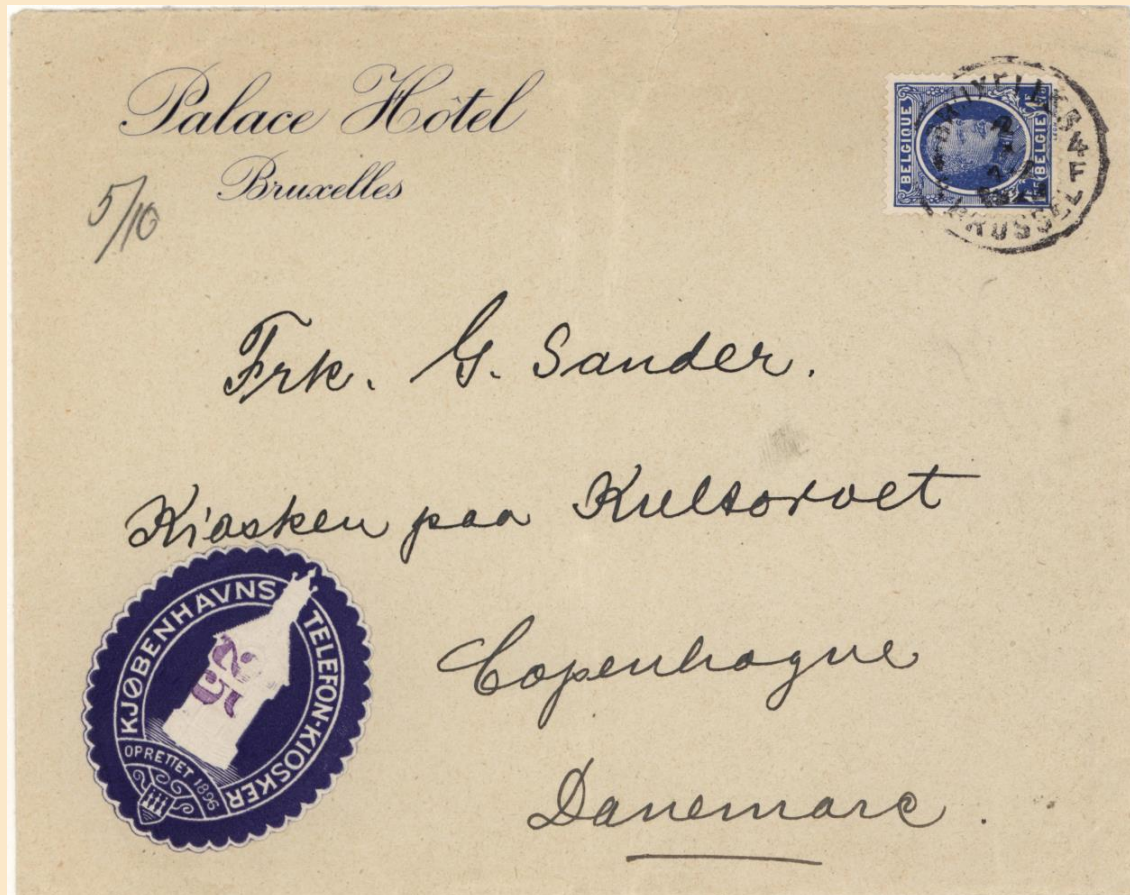 Palace Hôtel
Bruxelles
5/10
BELGIQUE
BELGIE
BRUXELLES 4
F
BRUSSEL
Frk. G. Sander.
Kiosken paa Kultorvet
Copenhague
Danemarc.
KJØBENHAVNS TELEFON-KIOSKER
25
OPRETTET 1896